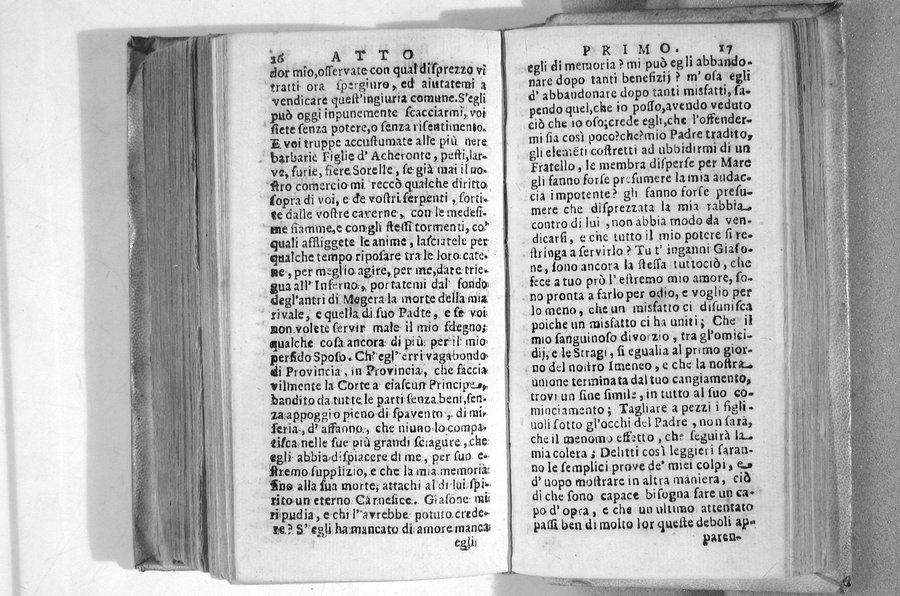 16 ATTO
dor mio, osſervate con qual diſprezzo vi
tratti ora ſpergiuro, ed aiutatemi a
vendicare queſt'ingiuria comune. S'egli
può oggi inpunemente ſcacciarmi, voi
ſiete ſenza potere, o ſenza riſentimento.
E voi truppe accuſtumate alle più nere
barbarie Figlie d'Acheronte, peſti, lar-
ve, furie, fiere Sorelle, ſe già mai il no-
ſtro comercio mi reccò qualche diritto
ſopra di voi, e de voſtri ſerpenti, ſorti-
te dalle voſtre caverne, con le medeſi-
me fiamme, e con gli ſteſſi tormenti, co'
quali affliggete le anime, laſciatele per
qualche tempo ripoſare tra le loro cate-
ne, per meglio agire, per me, dare trie-
gua all'Inferno, portatemi dal fondo
degl'antri di Megera la morte della mia
rivale, e quella di ſuo Padte, e ſe voi
non volete ſervir male il mio ſdegno;
qualche coſa ancora di più per il mio
perfido Spoſo. Ch'egl'erri vagabondo
di Provincia, in Provincia, che faccia
vilmente la Corte a ciaſcun Principe,
bandito da tutte le parti ſenza beni, ſen-
za appoggio pieno di ſpavento, di mi-
ſeria, d'affanno, che niuno lo compa-
tiſca nelle ſue più grandi ſciagure, che
egli abbia diſpiacere di me, per ſuo e-
ſtremo ſupplizio, e che la mia memoria
fino alla ſua morte, attachi al di lui ſpi-
rito un eterno Carnefice. Giaſone mi
ripudia, e chi l'avrebbe potuto crede-
re? S'egli ha mancato di amore manca
egli
PRIMO. 17
egli di memoria? mi può egli abbando-
nare dopo tanti benefizij? m'oſa egli
d'abbandonare dopo tanti misfatti, ſa-
pendo quel, che io poſſo, avendo veduto
ciò che io oſo; crede egli, che l'offender-
mi ſia così poco? che? mio Padre tradito,
gli elemēti coſtretti ad ubbidirmi di un
Fratello, le membra diſperſe per Mare
gli fanno forſe preſumere la mia audac-
cia impotente? gli fanno forſe preſu-
mere che diſprezzata la mia rabbia
contro di lui, non abbia modo da ven-
dicarſi, e che tutto il mio potere ſi re-
ſtringa a ſervirlo? Tu t'inganni Giaſo-
ne, ſono ancora la ſteſſa tuttociò, che
fece a tuo prò l'eſtremo mio amore, ſo-
no pronta a farlo per odio, e voglio per
lo meno, che un misfatto ci diſuniſca
poiche un misfatto ci ha uniti; Che il
mio ſanguinoſo divorzio, tra gl'omici-
dij, e le Stragi, ſi egualia al primo gior-
no del noſtro Imeneo, e che la noſtra
unione terminata dal tuo cangiamento,
trovi un fine ſimile, in tutto al ſuo co-
minciamento; Tagliare a pezzi i figli-
uoli ſotto gl'occhi del Padre, non ſarà,
che il menomo effetto, che ſeguirà la
mia colera; Delitti così leggieri ſaran-
no le ſemplici prove de' miei colpi, e
d'uopo moſtrare in altra maniera, ciò
di che ſono capace biſogna fare un ca-
po d'opra, e che un ultimo attentato
paſſi ben di molto lor queſte deboli ap-
paren-